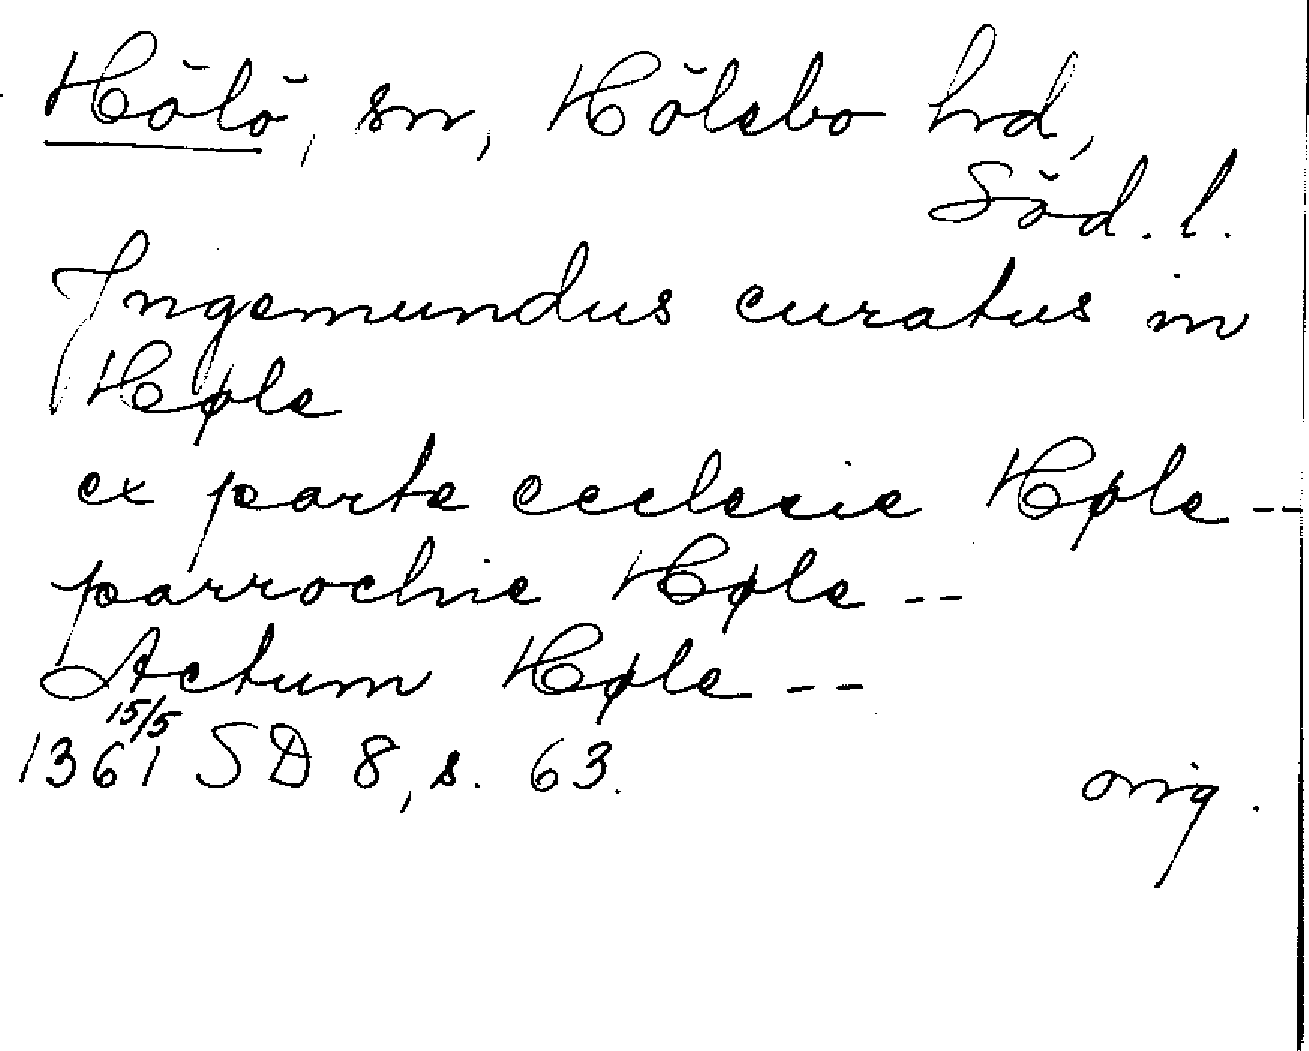 Hölö, sn, Hölebo hd,
Söd. l.
Ingemundus curatus in
Høle
ex parte ecclesie Høle --
parrochie Høle --
Actum Høle --
1361 15/5 SD 8, s. 63.
orig.